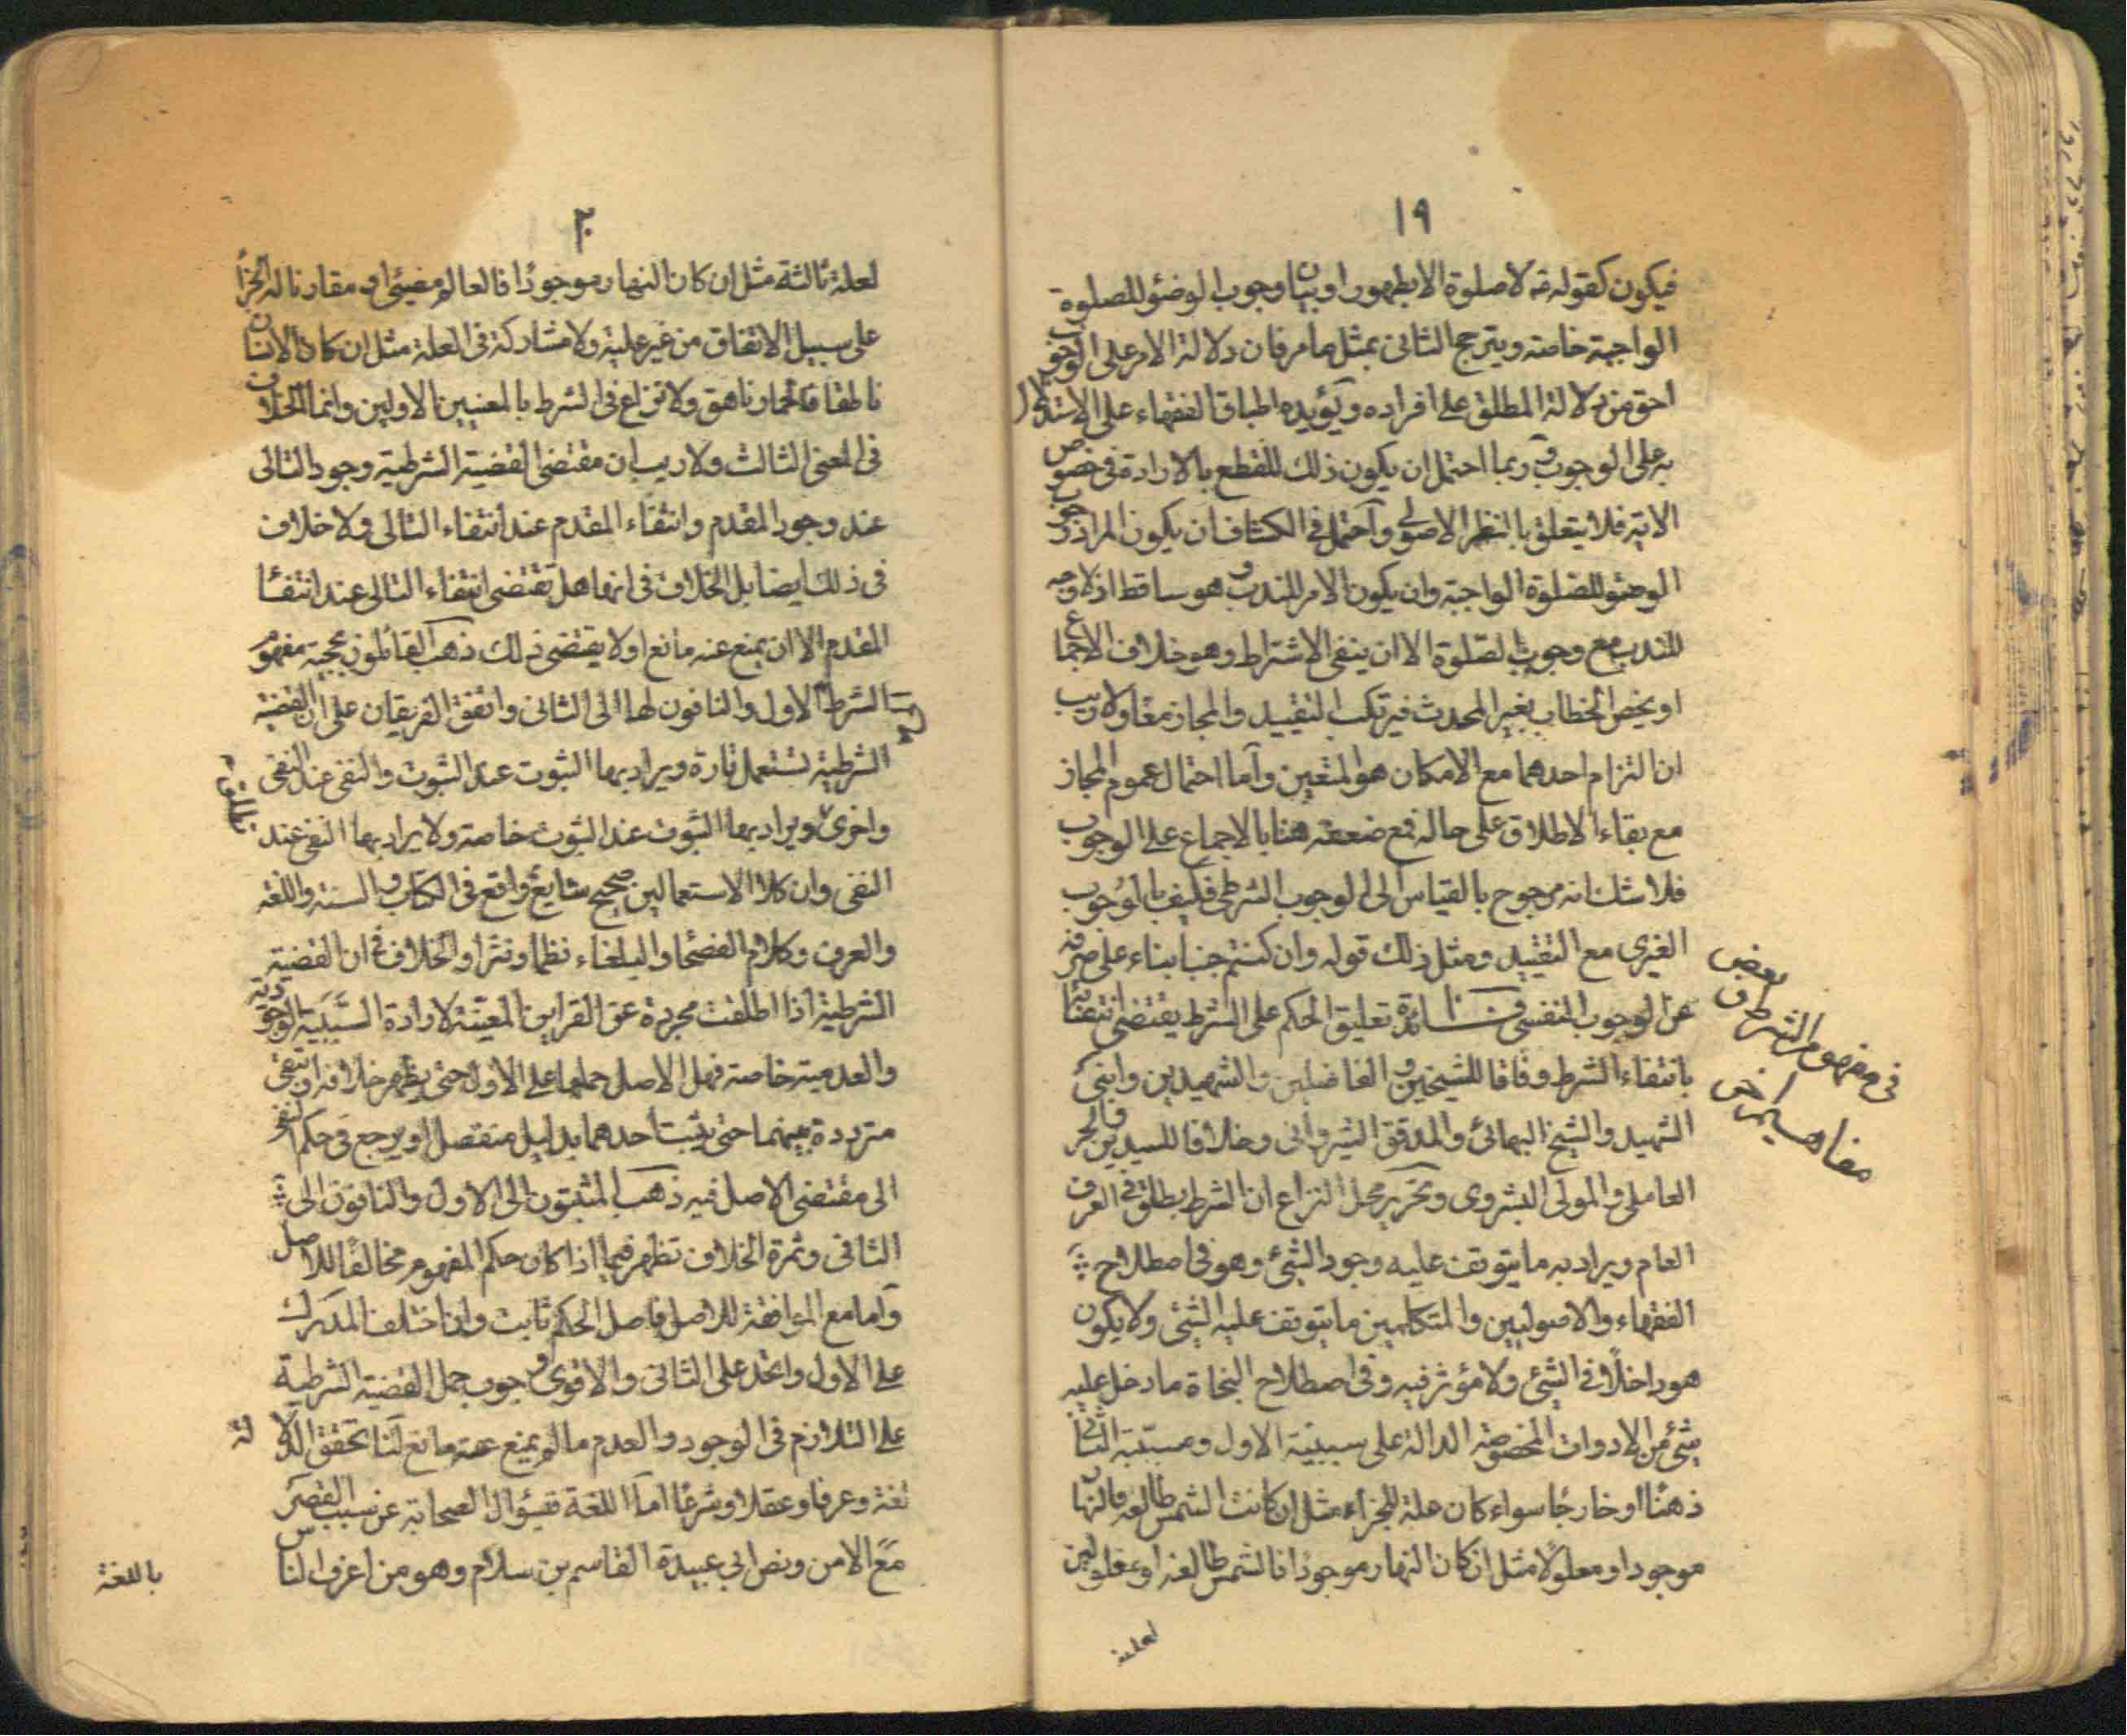 ١٩
فيكون كقوله ته لا صلوة الا بطهور او بيانا وجوب الوضوء للصلوة
الواجبة خاصة ويترجح الثانى بمثل ما مر فان دلالة الامر على الوجوب
احق من دلالة المطلق على افراده ويؤيده اطباق الفقهاء على الاستدلال
به على الوجوب وربما احتمل ان يكون ذلك للقطع بالارادة فى خصوص
الاية فلا يتعلق بالنظر الاصولى واحتمل فى الكشاف ان يكون المراد وجوب
الوضوء للصلوة الواجبة وان يكون الامر للندب وهو ساقط اذ لا وجه
للندب مع وجوب الصلوة الا ان ينفى الاشتراط وهو خلاف الاجماع
او يخص الخطاب بغير المحدث فيرتكب التقييد والمجاز معا ولا ريب
ان التزام احدهما مع الامكان هو المتعين واما احتمال عموم المجاز
مع بقاء الاطلاق على حاله فمع ضعفه هنا بالاجماع على الوجوب
فلا شك انه مرجوح بالقياس الى الوجوب الشرطى فكيف بالوجوب
الغيرى مع التقييد ومثل ذلك قوله وان كنتم جنبا بناء على صرفه
عن الوجوب النفسى فائدة تعليق الحكم على الشرط يقتضى انتفائه
بانتفاء الشرط وفاقا للشيخين والفاضلين والشهيدين وابنى
الشهيد والشيخ البهائى والمدقق الشيروانى وخلافا للسيدين والحر
العاملى والمولى البشروى وتحرير محل النزاع ان الشرط يطلق فى العرف
العام ويراد به ما يتوقف عليه وجود الشئ وهو فى اصطلاح
الفقهاء والاصوليين والمتكلمين ما يتوقف عليه الشئ ولا يكون
هو داخلا فى الشئ ولا مؤثر فيه وفى اصطلاح النحاة ما دخل عليه
شئ من الادوات المخصوصة الدالة على سببية الاول ومسببية الثانى
ذهنا او خارجا سواء كان علة للجزاء مثل ان كانت الشمس طالعة فالنهار
موجود او معلولا مثل ان كان النهار موجودا فالشمس طالعة او معلولين
لعلة
فى مفهوم الشرط و بعض
مفاهيم اخر
٢٠
لعلة ثالثة مثل ان كان النهار موجودا فالعالم مضيئ او مقارنا له الجزا
على سبيل الاتفاق من غير علية ولا مشاركة فى العلة مثل ان كان الانسان
ناطقا فالحمار ناهق ولا نزاع فى الشرط بالمعنيين الاولين وانما الخلاف
فى المعنى الثالث ولا ريب ان مقتضى القضية الشرطية وجود التالى
عند وجود المقدم وانتفاء المقدم عند انتفاء التالى ولا خلاف
فى ذلك ايضا بل الخلاف فى انها هل تقتضى انتفاء التالى عند انتفاء
المقدم الا ان يمنع عنه مانع او لا يقتضى ذلك ذهب القائلون بحجية مفهوم
الشرط الى الاول والنافون لها الى الثانى واتفق الفريقان على ان القضية
الشرطية تستعمل تارة ويراد بها الثبوت عند الثبوت والنفى عند النفى
واخرى ويراد بها الثبوت عند الثبوت خاصة ولا يراد بها النفى عند
النفى وان كلا الاستعمالين صحيح شايع واقع فى الكتاب والسنة واللغة
والعرف وكلام الفصحا والبلغاء نظما ونثرا والخلاف فى ان القضية
الشرطية اذا اطلقت مجردة عن القراين المعينة لارادة السببية الوجودية
والعدمية خاصة فهل الاصل حملها على الاول حتى يظهر خلافه او تبقى
مترددة بينهما حتى يثبت احدهما بدليل منفصل او يرجع فى حكم النفى
الى مقتضى الاصل فيه ذهب المثبتون الى الاول والنافون الى
الثانى وثمرة الخلاف تظهر فيما اذا كان حكم المفهوم مخالفا للاصل
واما مع الموافقة للاصل فاصل الحكم ثابت وان اختلف المدرك
على الاول واتحد على الثانى والاقوى وجوب حمل القضية الشرطية
على التلازم فى الوجود والعدم ما لم يمنع عنه مانع لنا تحقق الدلالة
لغة وعرفا وعقلا وشرعا اما اللغة فسؤال الصحابة عن سبب القصر
مع الامن ونص ابى عبيدة القاسم بن سلام وهو من اعرف الناس
باللغة